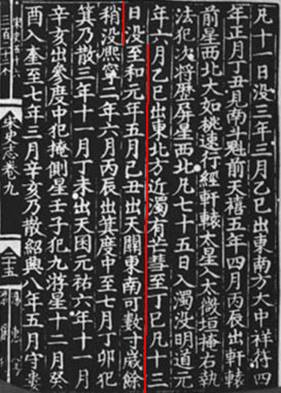 凡十一日没三年三月乙巳出東南方大中祥符四
年正月丁丑見南斗魁前天禧五年四月丙辰出軒轅
前星西北大如桃速行經軒轅大星入太微垣掩右執
法犯次將歷屏星西北凡七十五日入濁没明道元
年六月乙巳出東北方近濁有芒彗至丁巳凡十三
日没至和元年五月己丑出天關東南可數寸歲餘
稍没熙寧二年六月丙辰出箕度中至七月丁卯犯
箕乃散三年十一月丁未出天囷元祐六年十一月
辛亥出參度中犯掩側星壬子犯九斿星十二月癸
酉入奎至七年三月辛亥乃散紹興八年五月守婁
史志卷九
二五